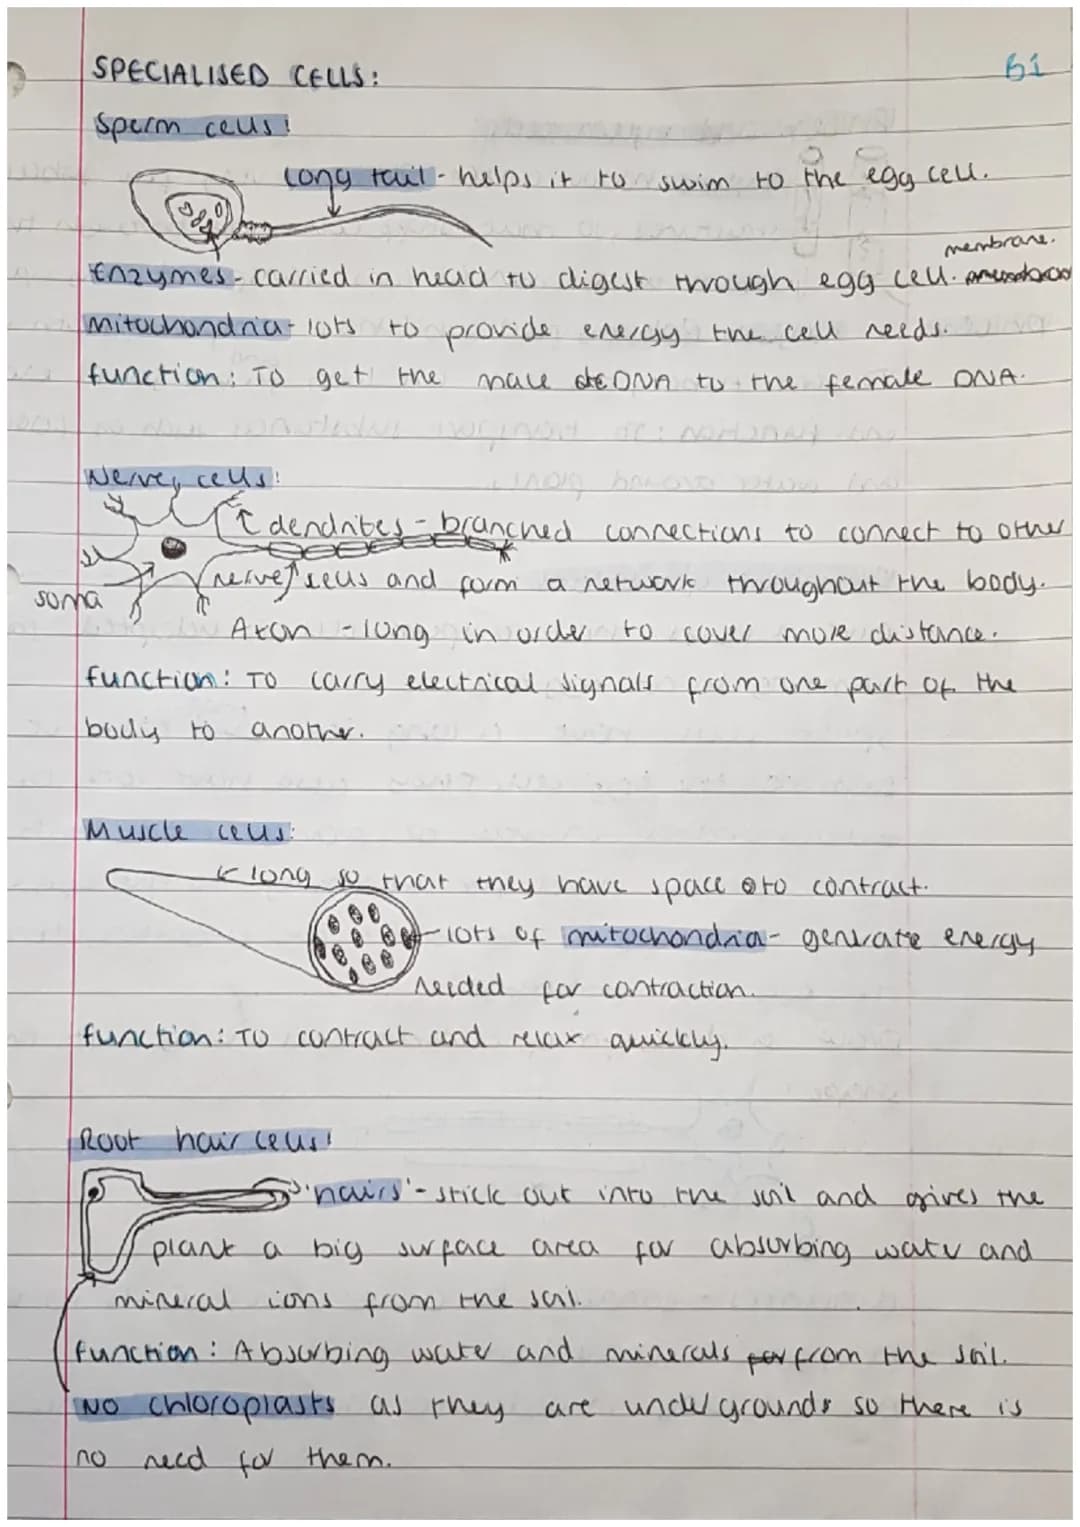 SPECIALISED CELLS:
B1
Sperm cells:
Long tail - helps it to swim to the egg cell.
membrane.
Enzymes - carried in head to digest through egg cell.
mitochondria - lots to provide energy the cell needs.
function: To get the male DNA to the female DNA.
Nerve cells:
dendrites - branched connections to connect to other
nerve cells and form a network throughout the body.
soma
Axon - long in order to cover more distance.
function: To carry electrical signals from one part of the
body to another.
Muscle cells:
long so that they have space to contract.
lots of mitochondria - generate energy
needed for contraction.
function: To contract and relax quickly.
Root hair cells:
'hairs' - stick out into the soil and gives the
plant a big surface area for absorbing water and
mineral ions from the soil.
function: Absorbing water and minerals from the soil.
No chloroplasts as they are undergrounds so there is
no need for them.